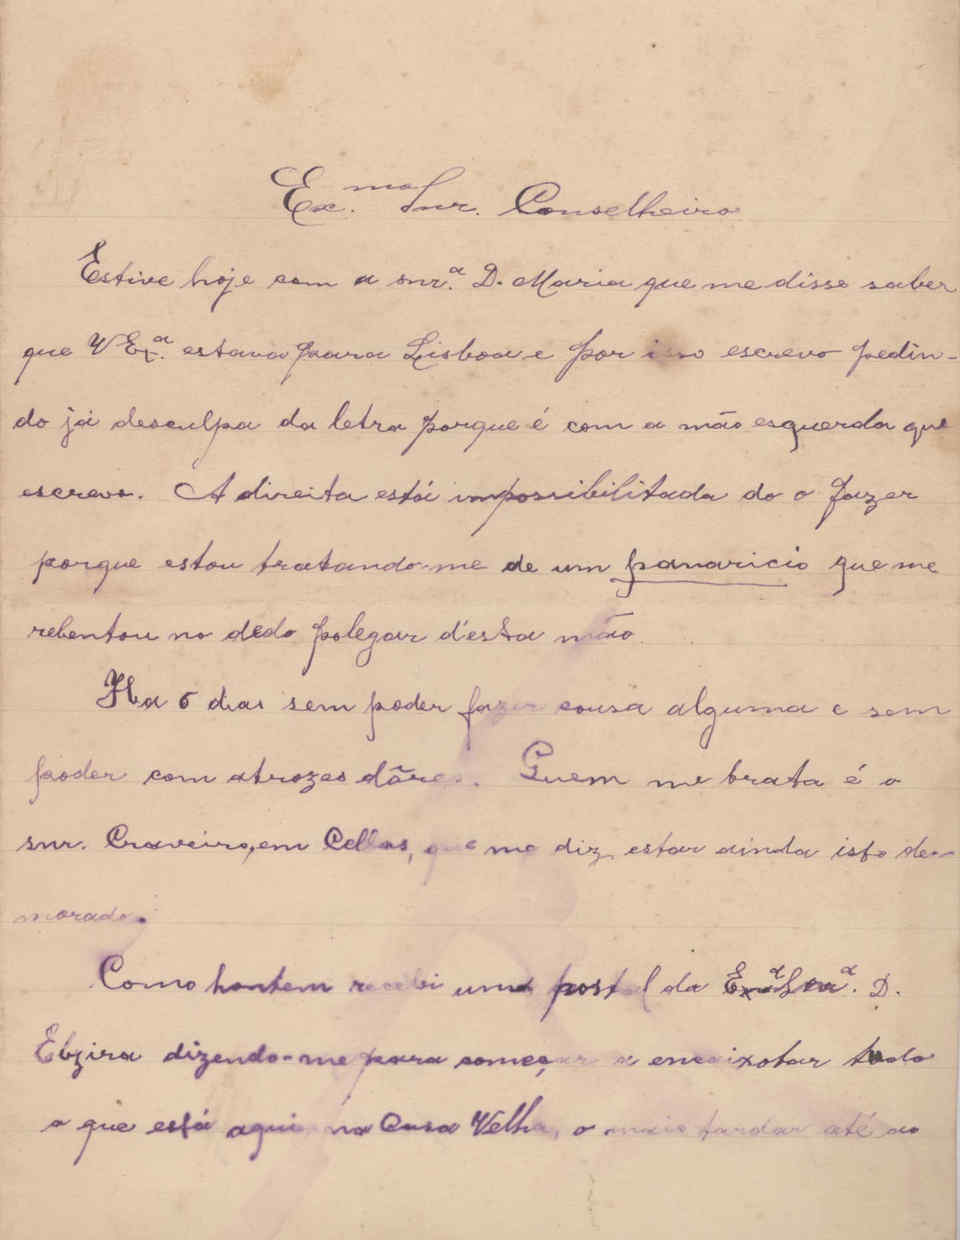 Ex.mo Snr. Conselheiro
Estive hoje com a snr.ª D. Maria que me disse saber
que V Ex.ª estava para Lisboa e por isso escrevo pedin-
do já desculpa da letra porque é com a mão esquerda que
escrevo. A direita está impossibilitada do o fazer
porque estou tratando-me de um panaricio que me
rebentou no dedo polegar d'esta mão.
Ha 6 dias sem poder fazer cousa alguma e sem
poder com atrozes dôres. Quem me trata é o
snr. Craveiro, em Cellas, que me diz estar ainda isto de-
morado.
Como hontem recebi um postal da Exmª Snrª. D.
Elzira dizendo-me para começar a encaixotar tudo
o que está aqui na Casa Velha, o mais tardar até ao